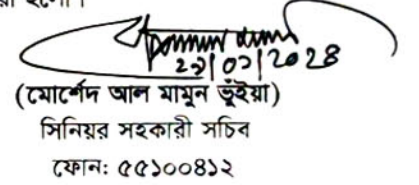 হলো।
(মোর্শেদ আল মামুন ভূঁইয়া)
সিনিয়র সহকারী সচিব
ফোন: ৫৫১০০৪১২